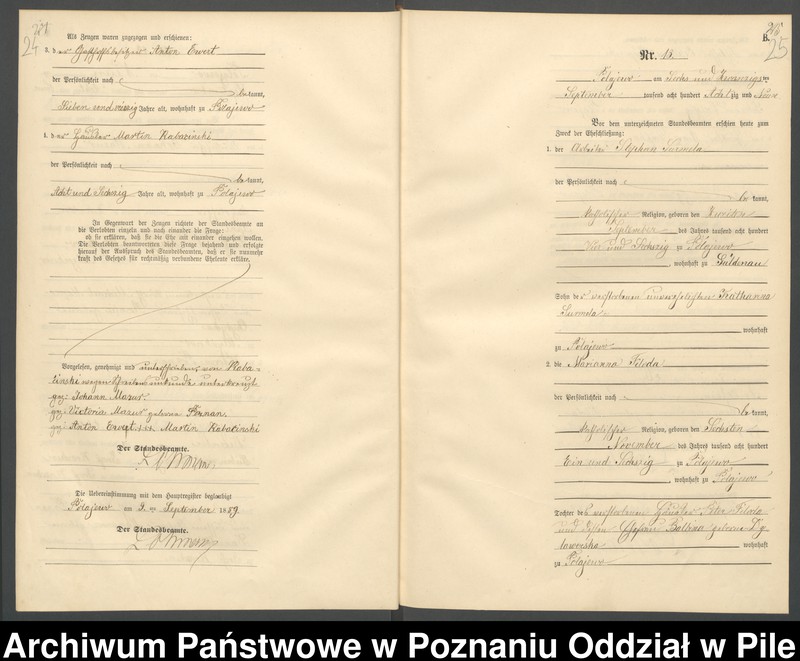 24
Als Zeugen waren zugezogen und erschienen:
3. der Gasthofsbesitzer Anton Ewert
der Persönlichkeit nach
be kannt,
Sieben und vierzig Jahre alt, wohnhaft zu Polajewo
4. der Häusler Martin Rabazinski
der Persönlichkeit nach
be kannt,
Acht und Sechzig Jahre alt, wohnhaft zu Polajewo
In Gegenwart der Zeugen richtete der Standesbeamte an
die Verlobten einzeln und nach einander die Frage:
ob sie erklären, daß sie die Ehe mit einander eingehen wollen.
Die Verlobten beantworteten diese Frage bejahend und erfolgte
hierauf der Ausspruch des Standesbeamten, daß er sie nunmehr
kraft des Gesetzes für rechtmäßig verbundene Eheleute erkläre.
Vorgelesen, genehmigt und unterschrieben, von Raba-
zinski wegen Schreibensunkunde unterkreuzt
gez: Johann Mazur.
gez: Victoria Mazur geborene
gez: Anton Ewert, +++ Martin Rabazinski
Der Standesbeamte.
Die Uebereinstimmung mit dem Hauptregister beglaubigt
Polajewo am 9. ten September 1889.
Der Standesbeamte.
25
B.
Nr. 13.
Polajewo am Sechs und Zwanzigs ten
September tausend acht hundert Acht zig und Neun
Vor dem unterzeichneten Standesbeamten erschien heute zum
Zweck der Eheschließung:
1. der Arbeiter Stephan Surmela
der Persönlichkeit nach
be kannt,
katholischer Religion, geboren den Zweiten
September des Jahres tausend acht hundert
Vier und Sechszig zu Polajewo
, wohnhaft zu Güldenau
Sohn der verstorbenen unverehelichten Katharina
Surmela
wohnhaft
zu Polajewo
2. die Marianna Filoda
der Persönlichkeit nach
be kannt,
katholischer Religion, geboren den Sechsten
November des Jahres tausend acht hundert
Ein und Sechszig zu Polajewo
, wohnhaft zu Polajewo
Tochter des verstorbenen Häusler Peter Filoda
und dessen Ehefrau Balbina geborene
wohnhaft
zu Polajewo
Archiwum Państwowe w Poznaniu Oddział w Pile